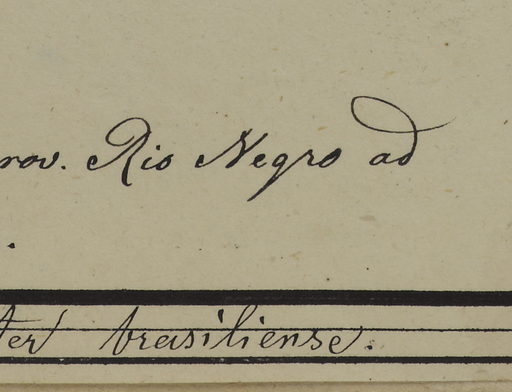 rov. Rio Negro ad
.
ter brasiliense.